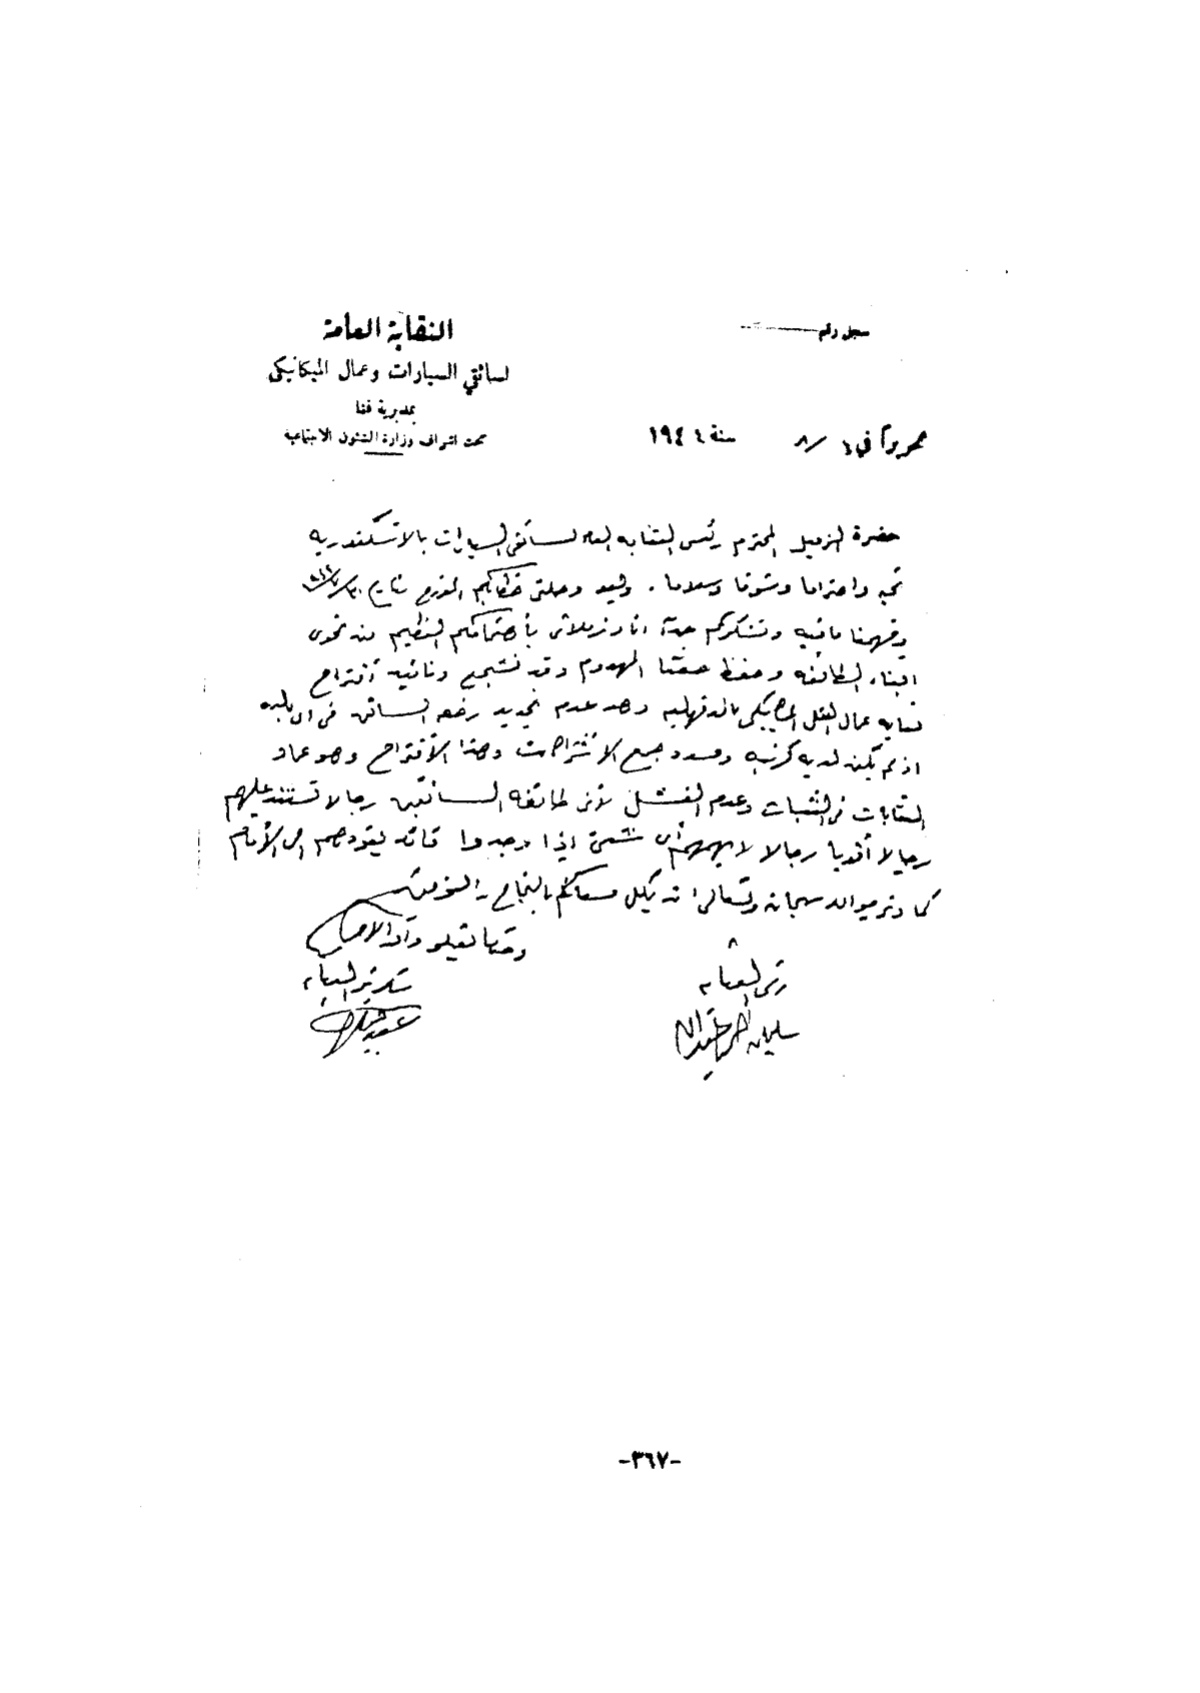 النقابة العامة
لسائقي السيارات وعمال الميكانيكى
بمديرية قنا
تحت اشراف وزارة الشئون الاجتماعية
سجل رقم
تحريراً في ٤ / ٨ سنة ١٩٤٤
حضرة الزميل المحترم رئيس النقابه العامه لسائقى السيارات بالاسكندريه
تحيه واحتراما وشوقا وسلاما . وبعد وصلنى خطابكم المؤرخ بتاريخ
وفهمنا ما فيه ونشكركم جدآ انا وزملائى بأهتمامكم العظيم من نحوى
ابناء الطائفه وحفظ حقنا المهدوم وقد نشجع ونأيد أقتراح
نقابه عمال النقل الميكانيكى بالدقهليه وهو عدم تجديد رخص السائق فى اى بلده
اذ لم يكن لديه كرنيه ومسدد جميع الأشتراكات وهذا الأقتراح وهو عماد
النقابات فى الثبات وعدم الفشل لأن طائفه السائقين رجالا تستند عليهم
رجالا أقويا رجالا لا يهمهم أى شىء إذا وجدوا قائد يقودهم الى الأمام
كما ونرجو الله سبحانه وتعالى ان يكلل مسعاكم بالنجاح والتوفيق
وختاما تقبلو وآفر الاحترام
رئيس النقابه
سكرتير النقابه
سليمان